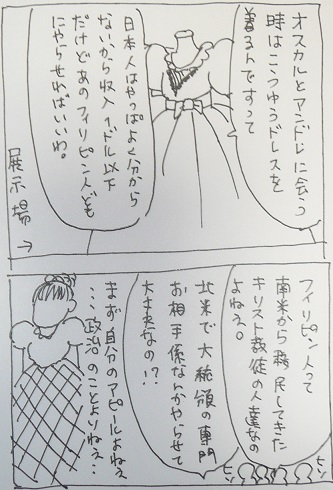 オスカルとアンドレに会う
時はこうゆうドレスを
着るんですって
日本人はやっぱよく分から
ないから収入1ドル以下
だけどあのフィリピン人ども
にやらせればいいわ。
展示場→
フィリピン人って
南米から移民してきた
キリスト教徒の人達なの
よねえ。
北米で大統領の専門
お相手係なんかやらせて
大丈夫なの!?
まず自分のアピールよねえ
…政治のことよりねえ…
ヒソ
ヒソ